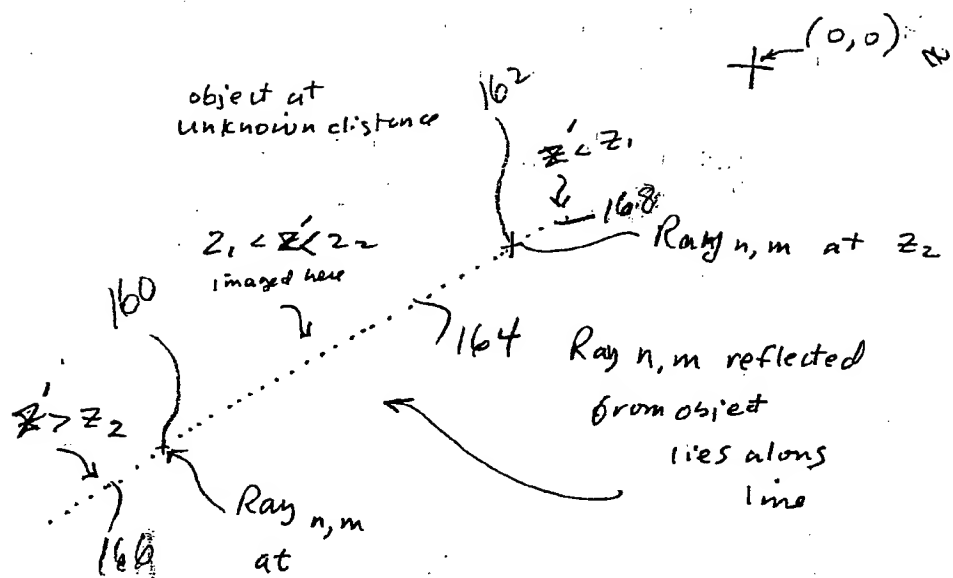 (0,0)
z
object at
unknown distance
162
z' < z1
168
Ray n,m at z2
z1 < z' < z2
imaged here
160
164
Ray n,m reflected
from object
lies along
line
z' > z2
166
Ray n,m
at